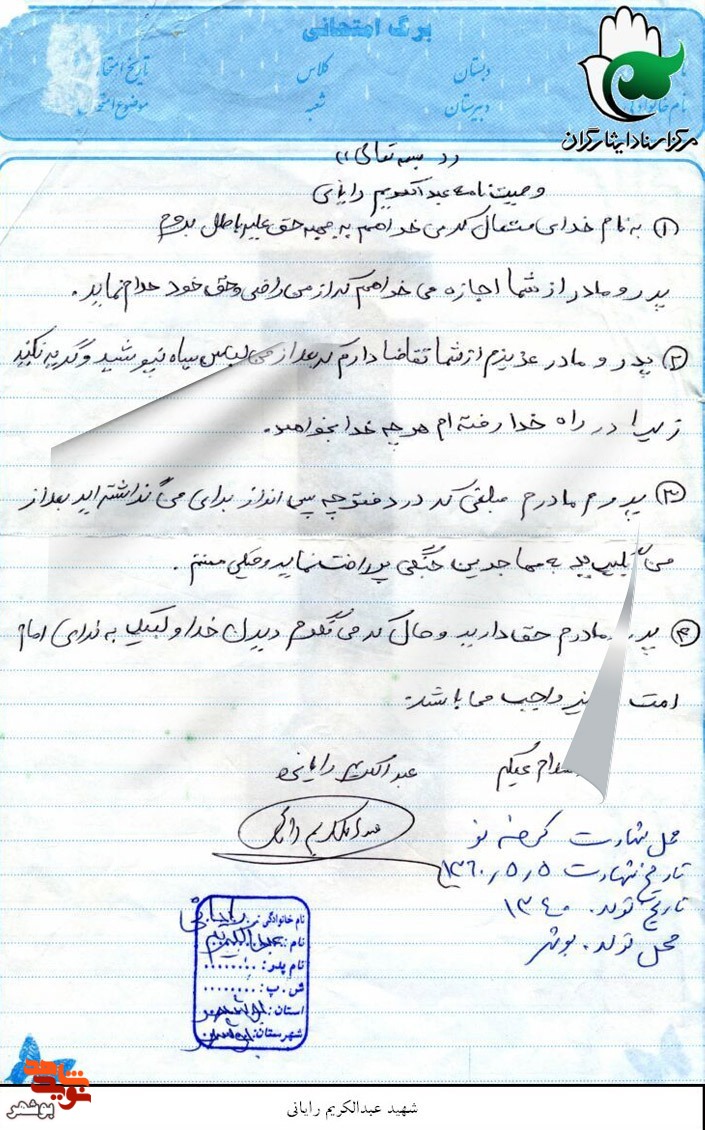 برگ امتحانی
دبستان کلاس تاریخ امتحان
نام خانوادگی دبیرستان شعبه موضوع امتحان
مرکز اسناد ایثارگران
«بسمه تعالی»
وصیت نامه عبدالکریم رایانی
۱) به نام خدای متعال که می خواهم به جبهه حق علیه باطل بروم
پدر و مادر از شما اجازه می خواهم که از من راضی و حق خود حلام نماید.
۲) پدر و مادر عزیزم از شما تقاضا دارم که بعد از من لباس سیاه نپوشید و گریه نکنید
زیرا در راه خدا رفته ام هر چه خدا بخواهد.
۳) پدرم مادرم مبلغی که در دفترچه پس انداز برای من گذاشته اید بعد از
من به مهاجرین جنگی پرداخت نماید
۴) مادرم حق دارید و حال که می گویم دیدن خدا و لبیک به ندای امام
امت نیز واجب می باشد.
علیکم عبدالکریم رایانی
عبدالکریم رایانی
محل شهادت کرخه نو
تاریخ شهادت ۱۳۶۰/۵/۵
تاریخ تولد. ۱۳۴۰
محل تولد. بوشهر
نام خانوادگی: رایانی
نام: عبدالکریم
نام پدر:
ش. پ:
استان: بوشهر
شهرستان: بوشهر
نوید شاهد
بوشهر
شهید عبدالکریم رایانی